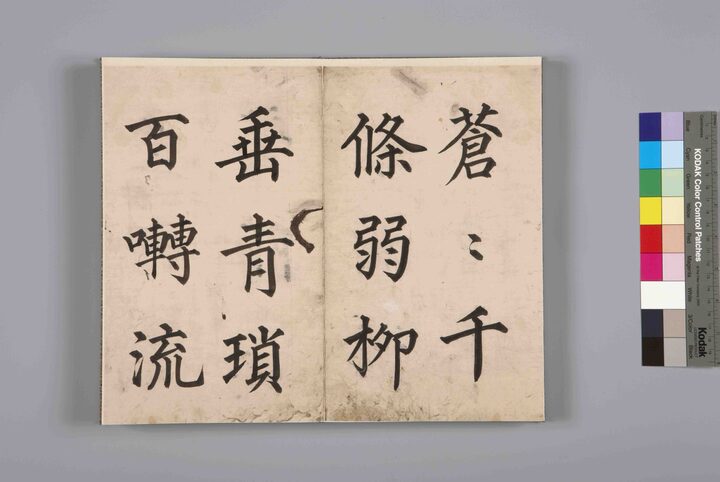 蒼〻千
條弱柳
垂青瑣
百囀流
KODAK Color Control Patches
Kodak
Blue
Cyan
Green
Yellow
Red
Magenta
White
3/Color
Black